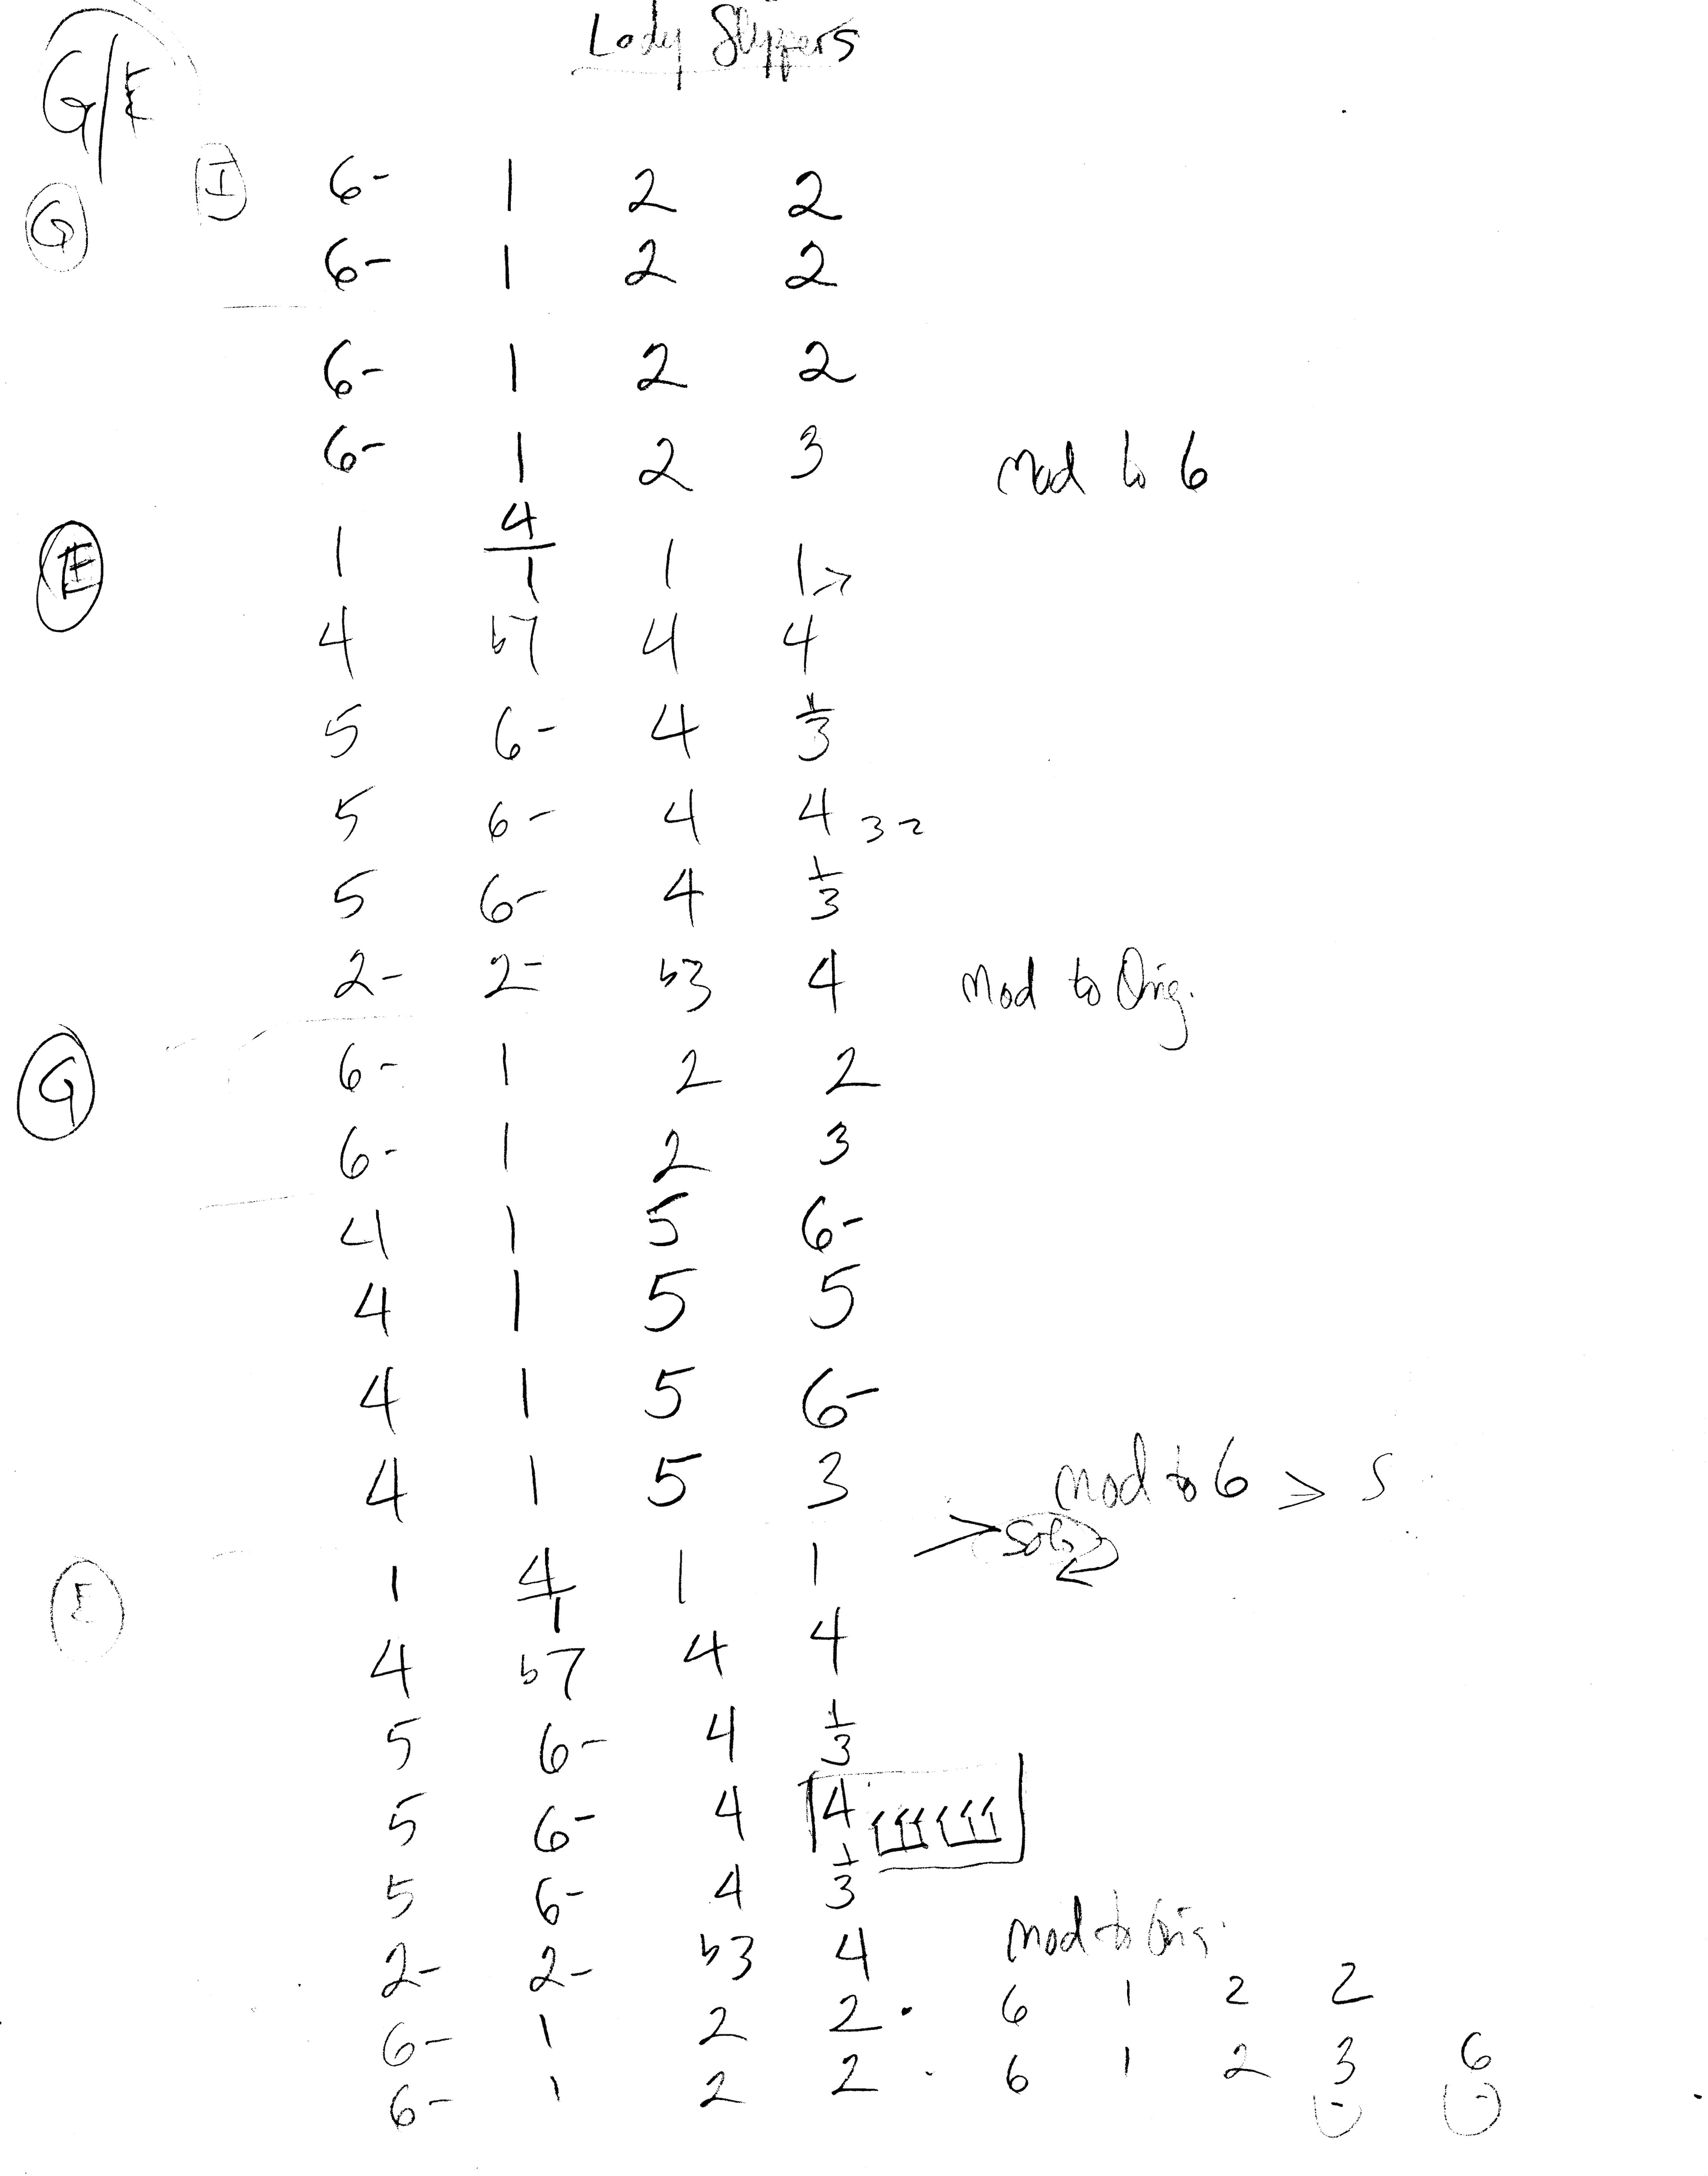 Lady Slippers
G/E
G I 6- 1 2 2
6- 1 2 2
6- 1 2 2
6- 1 2 3 mod to 6
E 1 4/1 1 1 >
4 b7 4 4
5 6- 4 1/3
5 6- 4 4 3 2
5 6- 4 1/3
2- 2- b3 4 Mod to Orig.
G 6- 1 2 2
6- 1 2 3
4 1 5 6-
4 1 5 5
4 1 5 6-
4 1 5 3 mod to 6 > S
> Solo
E 1 4/1 1 1
4 b7 4 4
5 6- 4 1/3
5 6- 4 4
5 6- 4 1/3
2- 2- b3 4 mod to Orig.
6- 1 2 2 . 6 1 2 2
6- 1 2 2 . 6 1 2 3 6